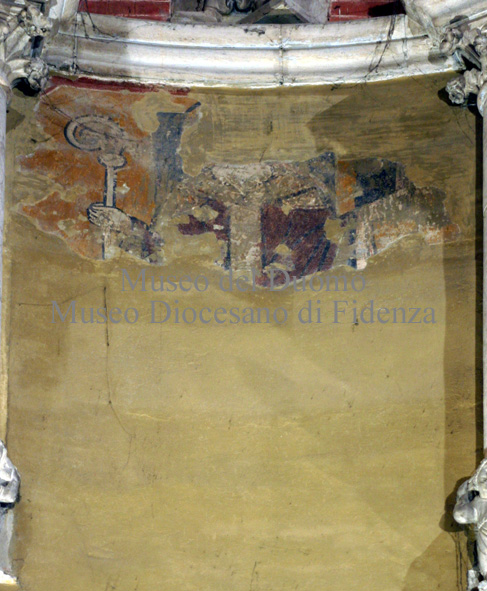 Museo del Duomo
Museo Diocesano di Fidenza